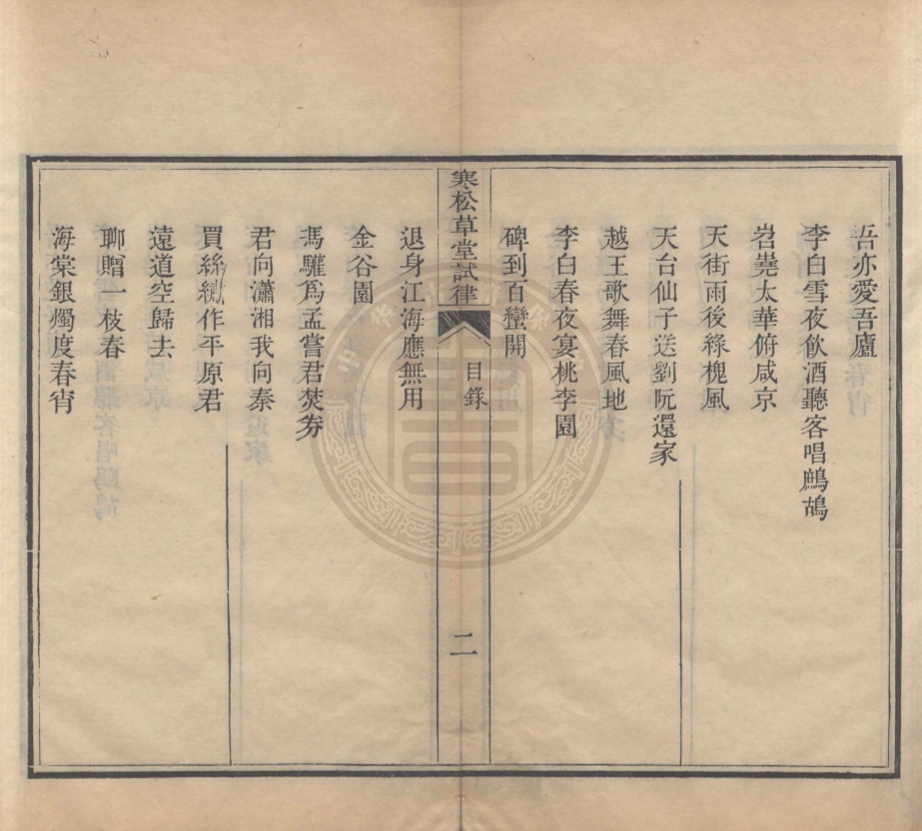 吾亦愛吾廬
李白雪夜飲酒聽客唱鷓鴣
岧嶤太華俯咸京
天街雨後綠槐風
天台仙子送劉阮還家
越王歌舞春風地
李白春夜宴桃李園
碑到百蠻開
寒松草堂試律
目錄
二
退身江海應無用
金谷園
馮驩爲孟嘗君焚券
君向瀟湘我向秦
買絲繡作平原君
遠道空歸去
聊贈一枝春
海棠銀燭度春宵